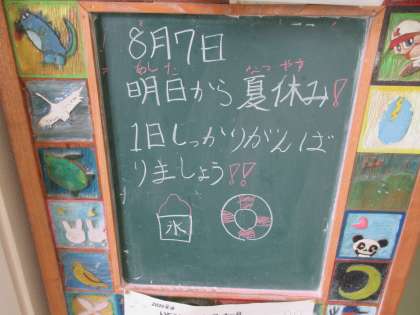 8月7日
あした なつやす
明日から夏休み!
1日しっかりがんば
りましょう!!
氷